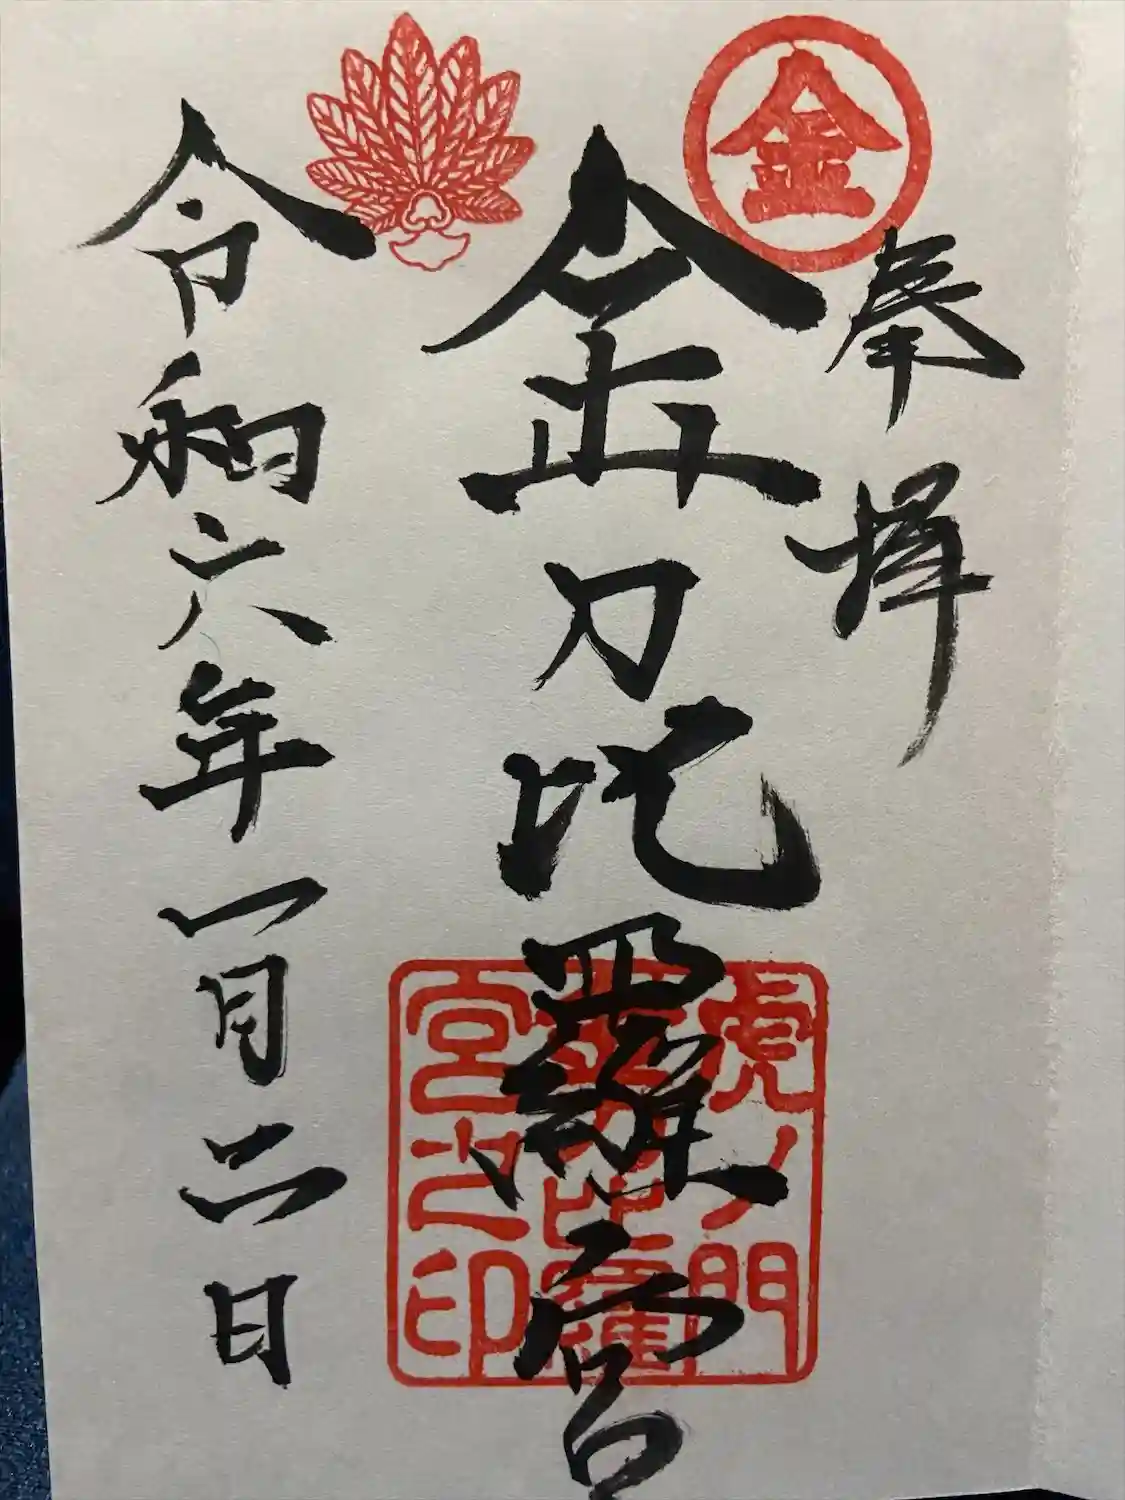 金
奉拝
金刀比羅宮
虎ノ門
金刀比羅
宮之印
令和六年一月二日